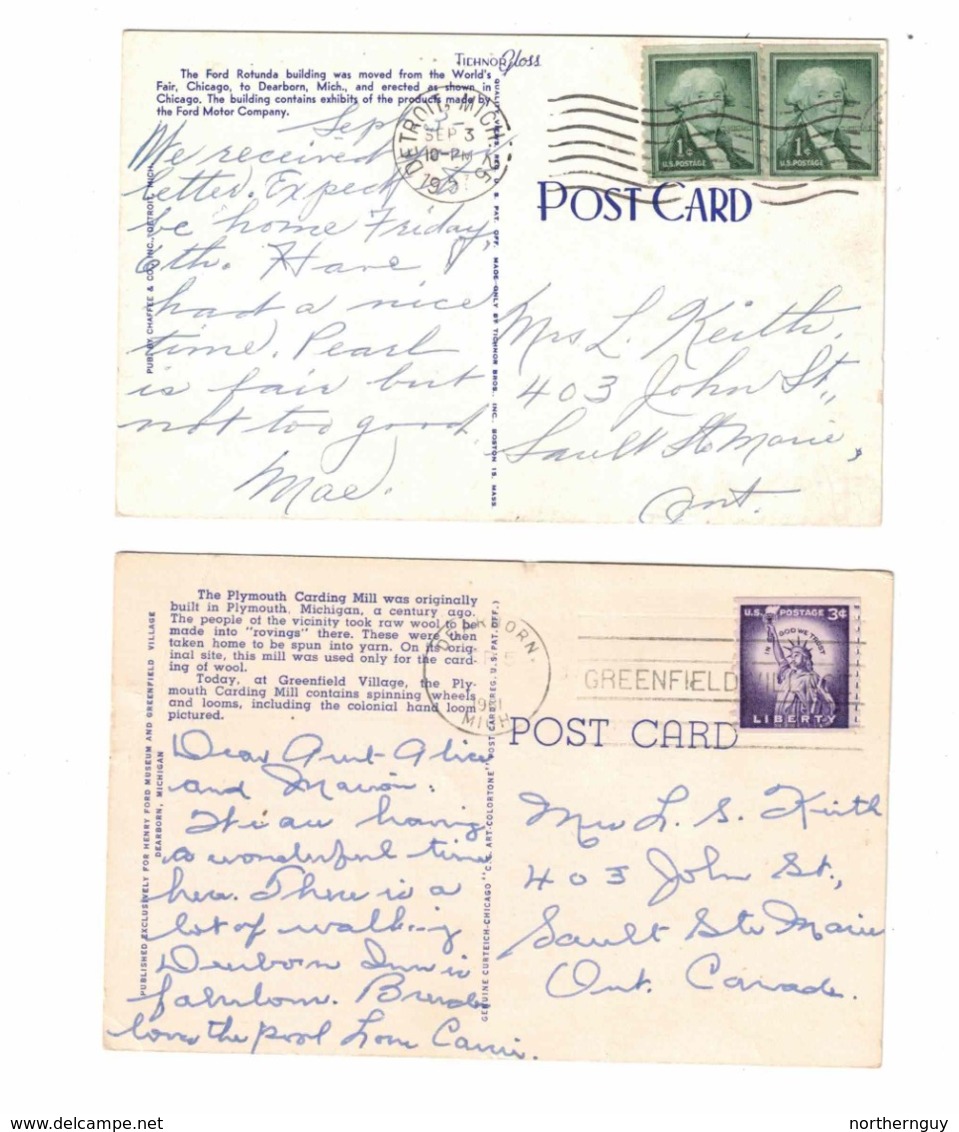 TICHNOR Gloss
The Ford Rotunda building was moved from the World's
Fair, Chicago, to Dearborn, Mich., and erected as shown in
Chicago. The building contains exhibits of the products made by
the Ford Motor Company.
DETROIT, MICH.
SEP 3
10-PM
195
1¢
U.S. POSTAGE
1¢
U.S. POSTAGE
POST CARD
Sept 3
We received
letter. Expect
be home Friday,
6th. Have
had a nice
time. Pearl
is fair but
not too good.
Mae.
Mrs L. Keith,
403 John St.,
Sault Ste Marie,
Ont.
PUB. BY CHAFFEE & CO., INC., DETROIT, MICH.
QUALITY VIEWS REG. U. S. PAT. OFF. MADE ONLY BY TICHNOR BROS. INC. BOSTON 15, MASS.
The Plymouth Carding Mill was originally
built in Plymouth, Michigan, a century ago.
The people of the vicinity took raw wool to be
made into "rovings" there. These were then
taken home to be spun into yarn. On its orig-
inal site, this mill was used only for the card-
ing of wool.
Today, at Greenfield Village, the Ply-
mouth Carding Mill contains spinning wheels
and looms, including the colonial hand loom
pictured.
DEARBORN,
MICH
GREENFIELD
U.S. POSTAGE 3¢
IN GOD WE TRUST
LIBERTY
POST CARD
Dear Aunt Alice
and Marion:
We are having
a wonderful time
here. There is a
lot of walking
Dearborn Inn is
fabulous. Brenda
loves the pool Love Carrie.
Mrs L. S. Keith
403 John St.,
Sault Ste Marie
Ont. Canada.
PUBLISHED EXCLUSIVELY FOR HENRY FORD MUSEUM AND GREENFIELD VILLAGE
DEARBORN, MICHIGAN
GENUINE CURTEICH-CHICAGO "C.T. ART-COLORTONE" POST CARD (REG. U.S. PAT. OFF.)
northernguy